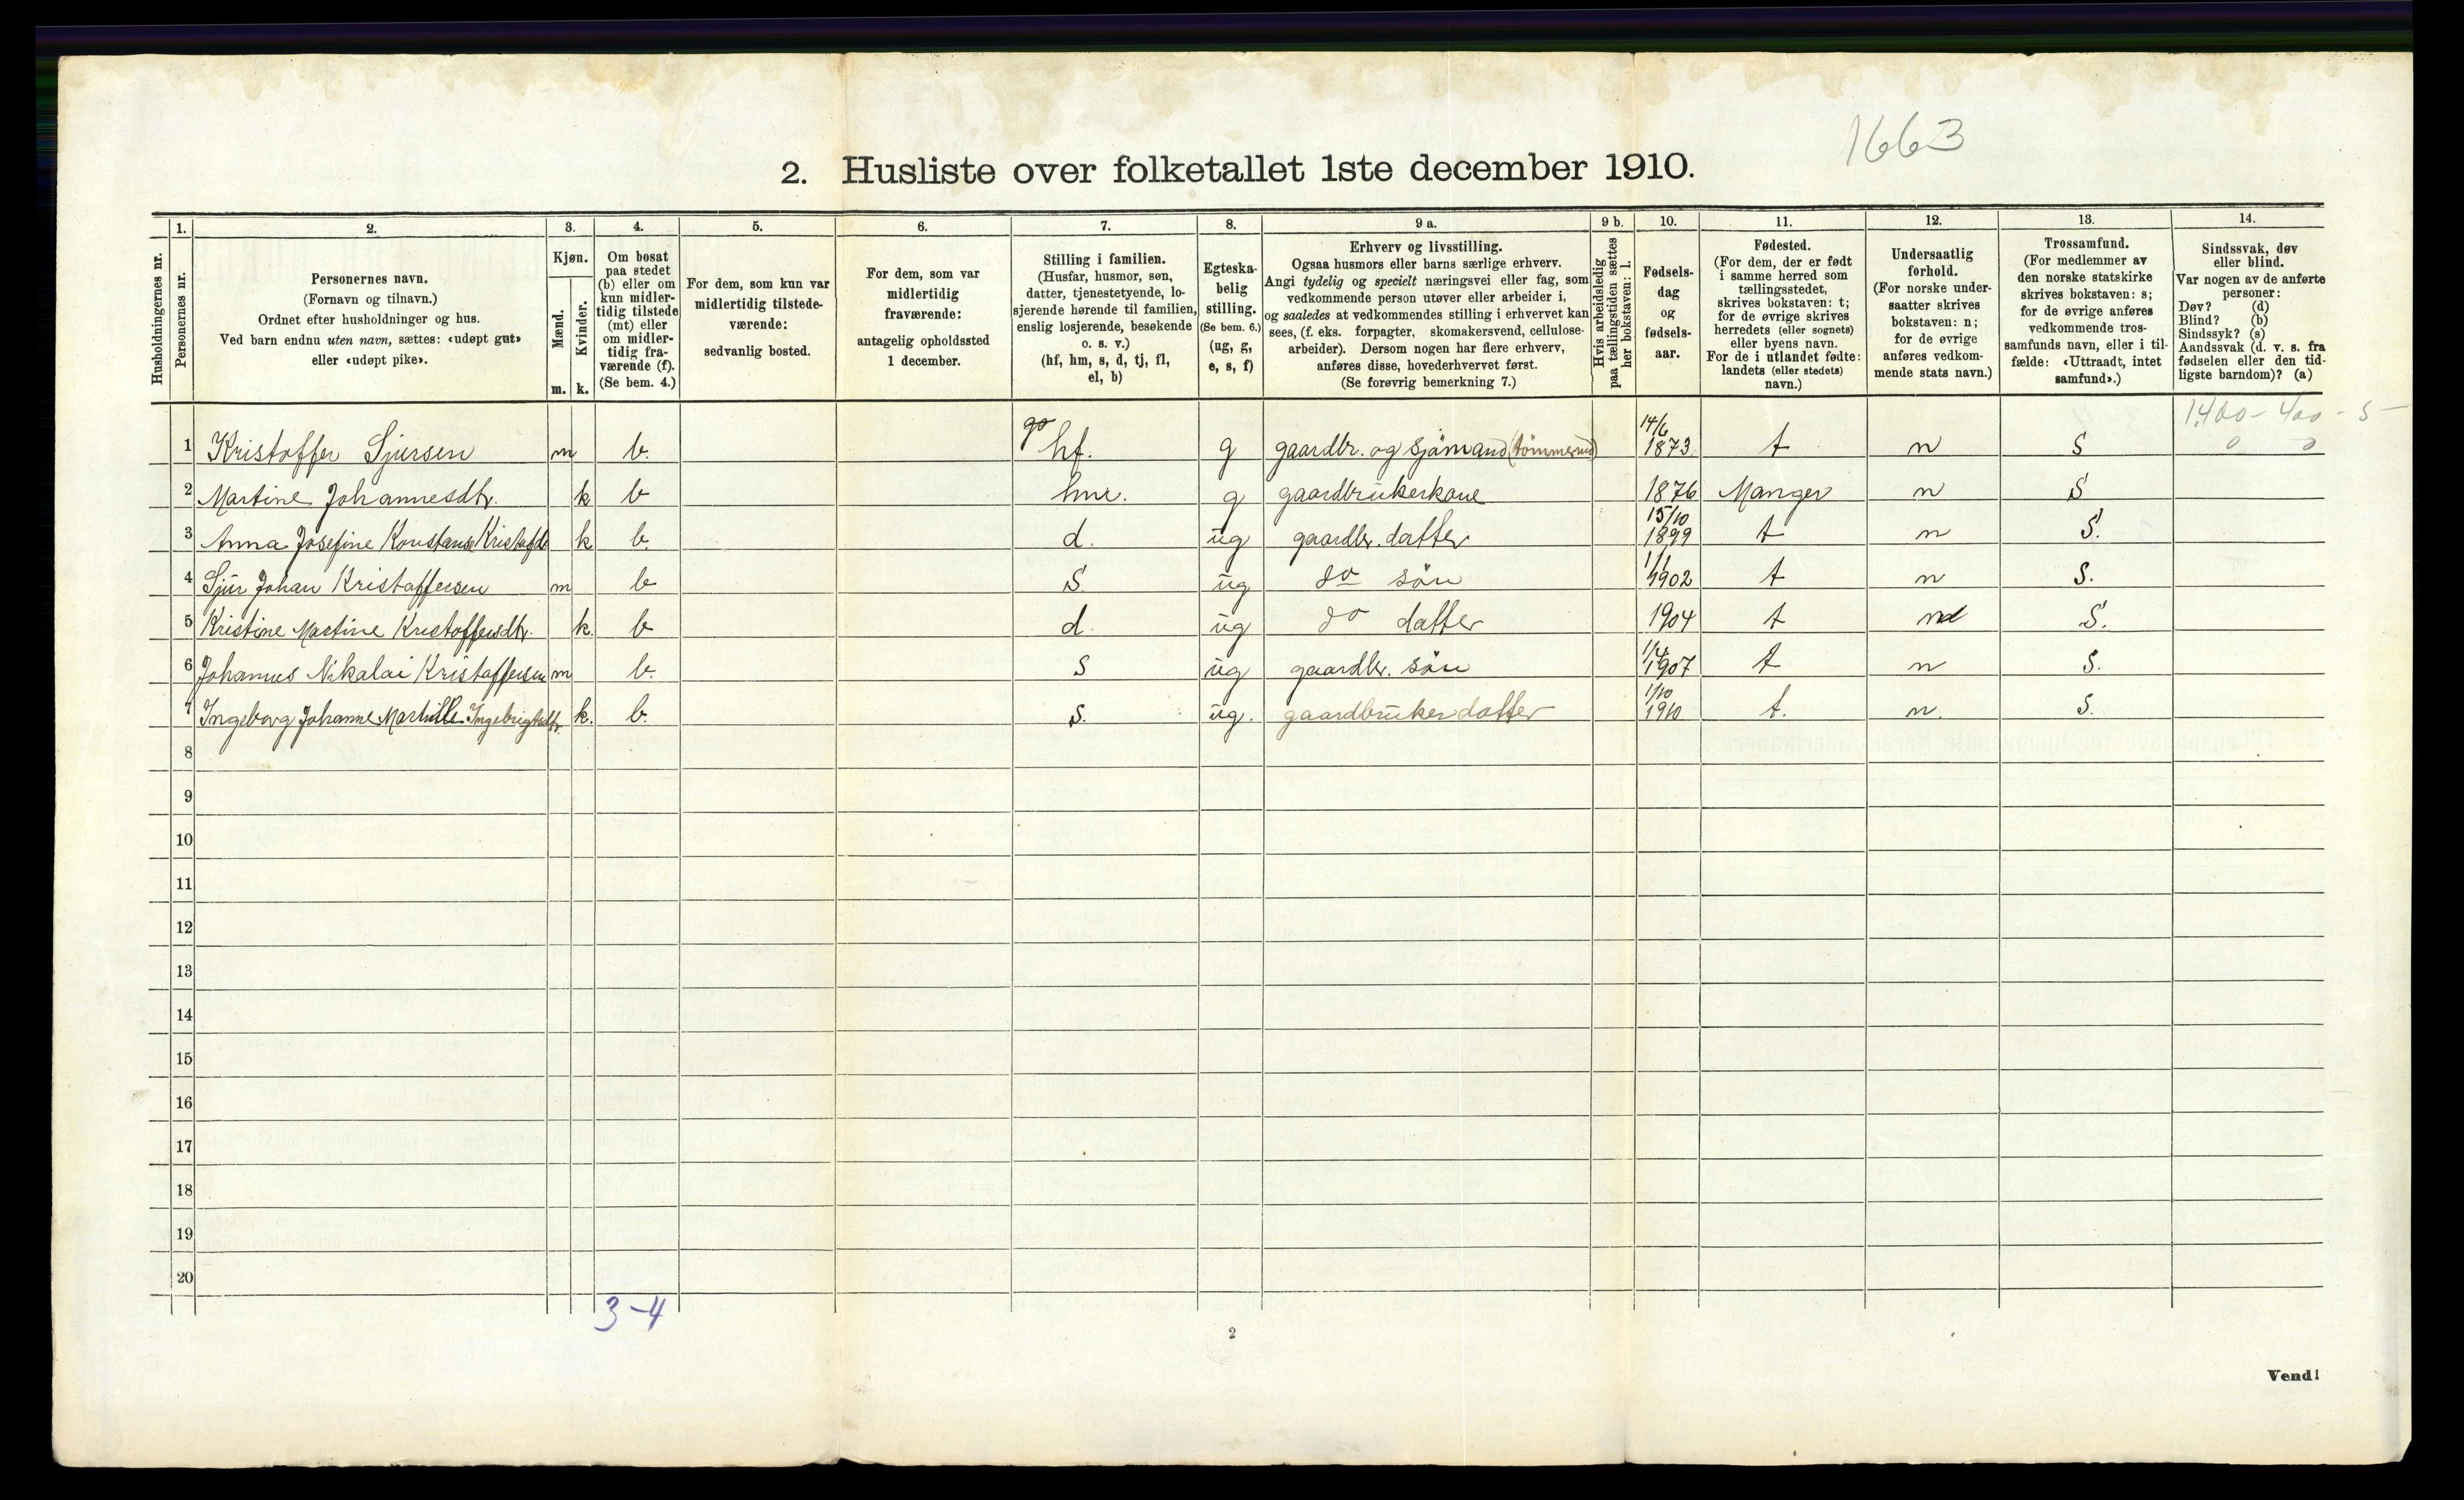 1663
2. Husliste over folketallet 1ste december 1910.
1. 2. 3. 4. 5. 6. 7. 8. 9 a. 9 b. 10. 11. 12. 13. 14.
Husholdningernes nr.
Personernes nr.
Personernes navn.
(Fornavn og tilnavn.)
Ordnet efter husholdninger og hus.
Ved barn endnu uten navn, sættes: «udøpt gut»
eller «udøpt pike».
Kjøn.
Mænd.
Kvinder.
m. k.
Om bosat
paa stedet
(b) eller om
kun midler-
tidig tilstede
(mt) eller
om midler-
tidig fra-
værende (f).
(Se bem. 4.)
For dem, som kun var
midlertidig tilstede-
værende:
sedvanlig bosted.
For dem, som var
midlertidig
fraværende:
antagelig opholdssted
1 december.
Stilling i familien.
(Husfar, husmor, søn,
datter, tjenestetyende, lo-
sjerende hørende til familien,
enslig losjerende, besøkende
o. s. v.)
(hf, hm, s, d, tj, fl,
el, b)
Egteska-
belig
stilling.
(Se bem. 6.)
(ug, g,
e, s, f)
Erhverv og livsstilling.
Ogsaa husmors eller barns særlige erhverv.
Angi tydelig og specielt næringsvei eller fag, som
vedkommende person utøver eller arbeider i,
og saaledes at vedkommendes stilling i erhvervet kan
sees, (f. eks. forpagter, skomakersvend, cellulose-
arbeider). Dersom nogen har flere erhverv,
anføres disse, hovederhvervet først.
(Se forøvrig bemerkning 7.)
Hvis arbeidsledig
paa tællingstiden sættes
her bokstaven: l.
Fødsels-
dag
og
fødsels-
aar.
Fødested.
(For dem, der er født
i samme herred som
tællingsstedet,
skrives bokstaven: t;
for de øvrige skrives
herredets (eller sognets)
eller byens navn.
For de i utlandet fødte:
landets (eller stedets)
navn.)
Undersaatlig
forhold.
(For norske under-
saatter skrives
bokstaven: n;
for de øvrige
anføres vedkom-
mende stats navn.)
Trossamfund.
(For medlemmer av
den norske statskirke
skrives bokstaven: s;
for de øvrige anføres
vedkommende tros-
samfunds navn, eller i til-
fælde: «Uttraadt, intet
samfund».)
Sindssvak, døv
eller blind.
Var nogen av de anførte
personer:
Døv? (d)
Blind? (b)
Sindssyk? (s)
Aandssvak (d. v. s. fra
fødselen eller den tid-
ligste barndom)? (a)
1400 - 400 - 5 -
1 Kristoffer Sjursen m b. hf. g gaardbr. og sjömand 14/6 1873 t n S
2 Martine Johannesdtr. k b hm. g gaardbrukerkone 1876 Manger n S
3 Anna Josefine Konstanse Kristofdt k b. d. ug gaardbr. datter 15/10 1899 t n S.
4 Sjur Johan Kristoffersen m b S ug do sön 1/1 1902 t n S.
5 Kristine Martine Kristoffersdtr. k. b d ug do datter 1904 t n S.
6 Johannes Nikolai Kristoffersen m b. S ug gaardbr. sön 1907 t n S.
7 Ingeborg Johanne Martille Ingebrigtsdtr. k. b. S. ug. gaardbruker datter 1/10 1910 t. n. S.
8
9
10
11
12
13
14
15
16
17
18
19
20
3-4
2
Vend!